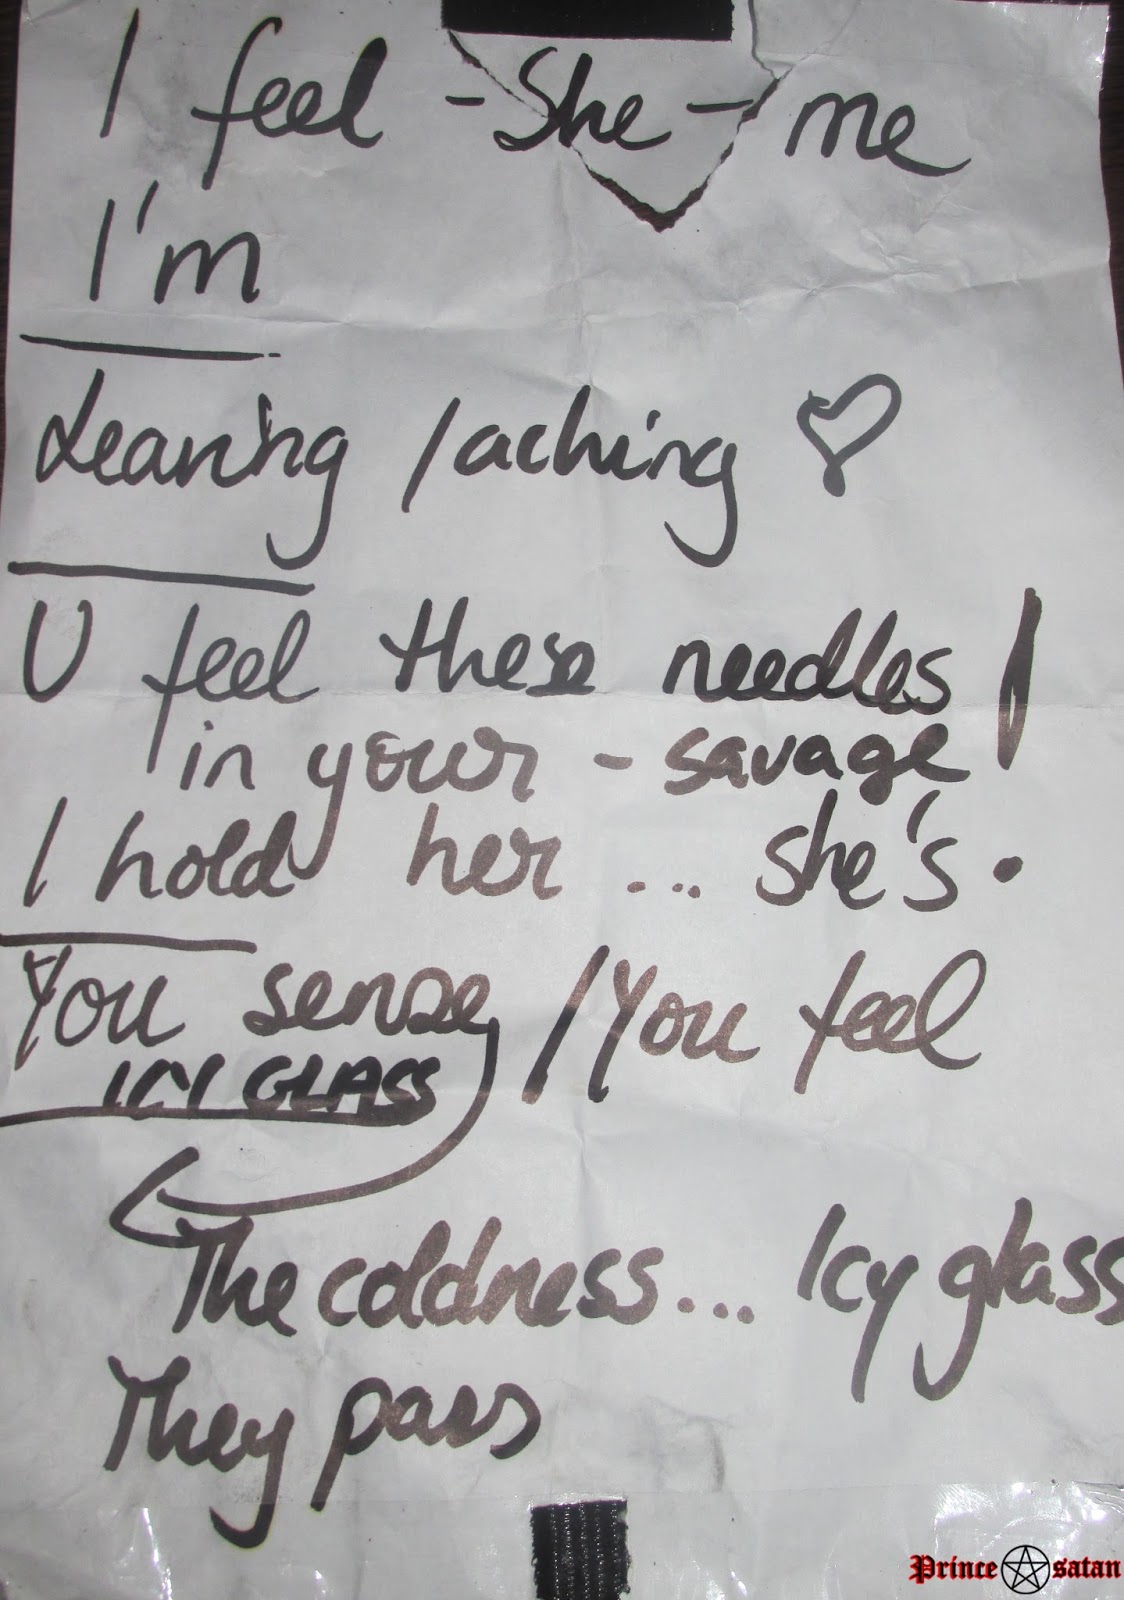 I feel - She - me
I'm
Leaning /aching ♡
U feel these needles !
in your - savage
I hold her ... she's .
You sense / You feel
ICY GLASS
The coldness... Icy glass
They pass
Prince satan